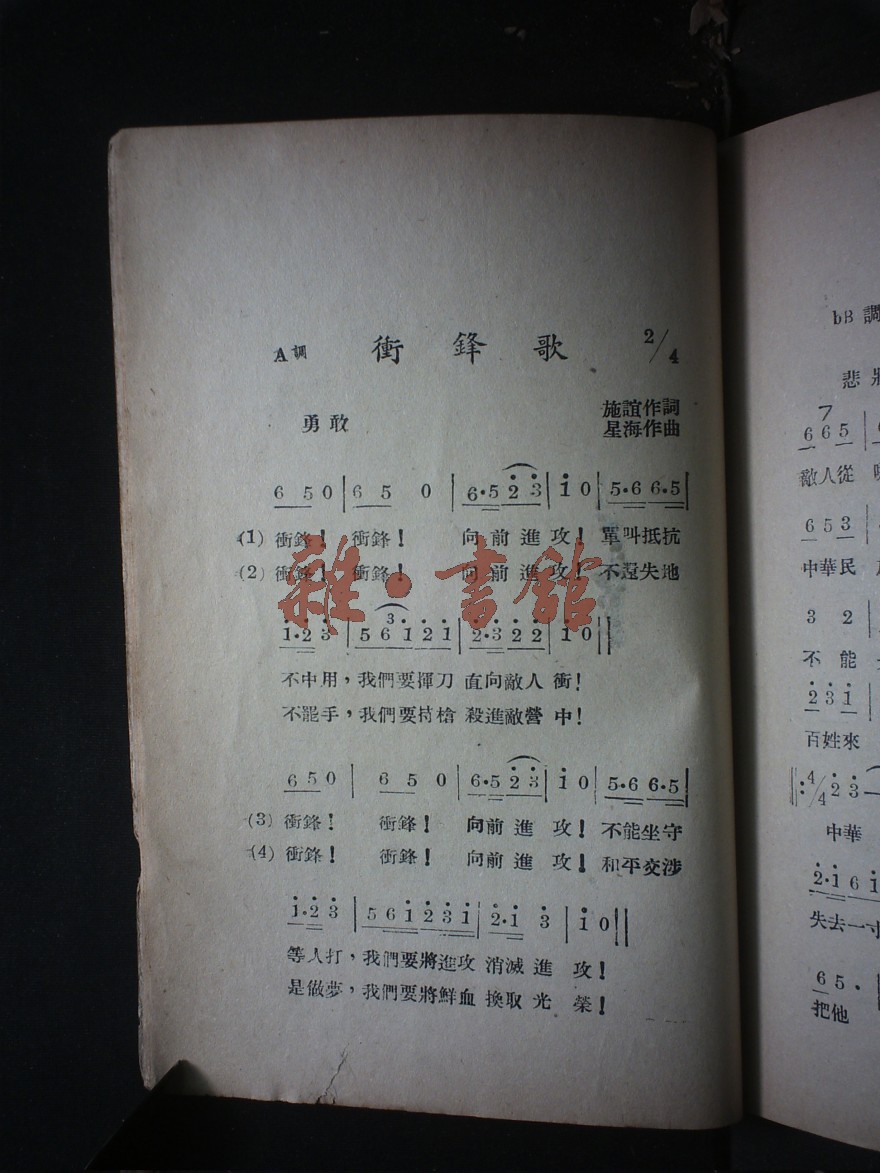 A調 衝鋒歌 2/4
勇敢
施誼作詞
星海作曲
6 5 0 | 6 5 0 | 6·5 2̇ 3̇ | 1̇ 0 | 5·6 6·5 |
(1) 衝鋒! 衝鋒! 向前進攻! 單叫抵抗
(2) 衝鋒! 衝鋒! 向前進攻! 不還失地
1̇·2̇ 3̇ | 5 6 1̇ 2̇ 1̇ | 2̇·3̇ 2̇ 2̇ | 1̇ 0 ||
3
不中用,我們要揮刀 直向敵人衝!
不罷手,我們要持槍 殺進敵營中!
6 5 0 | 6 5 0 | 6·5 2̇ 3̇ | 1̇ 0 | 5·6 6·5 |
(3) 衝鋒! 衝鋒! 向前進攻! 不能坐守
(4) 衝鋒! 衝鋒! 向前進攻! 和平交涉
1̇·2̇ 3̇ | 5 6 1̇ 2̇ 3̇ 1̇ | 2̇·1̇ 3̇ | 1̇ 0 ||
等人打,我們要將進攻 消滅進攻!
是做夢,我們要將鮮血 換取光榮!
雜·書館
bB 調
悲
7
6 6 5
敵人從
6 5 3
中華民
3 2
不能
2̇ 3̇ 1̇
百姓來
4/4 2̇ 3̇
中華
2̇·1̇ 6 1̇
失去一寸
6 5·
把他